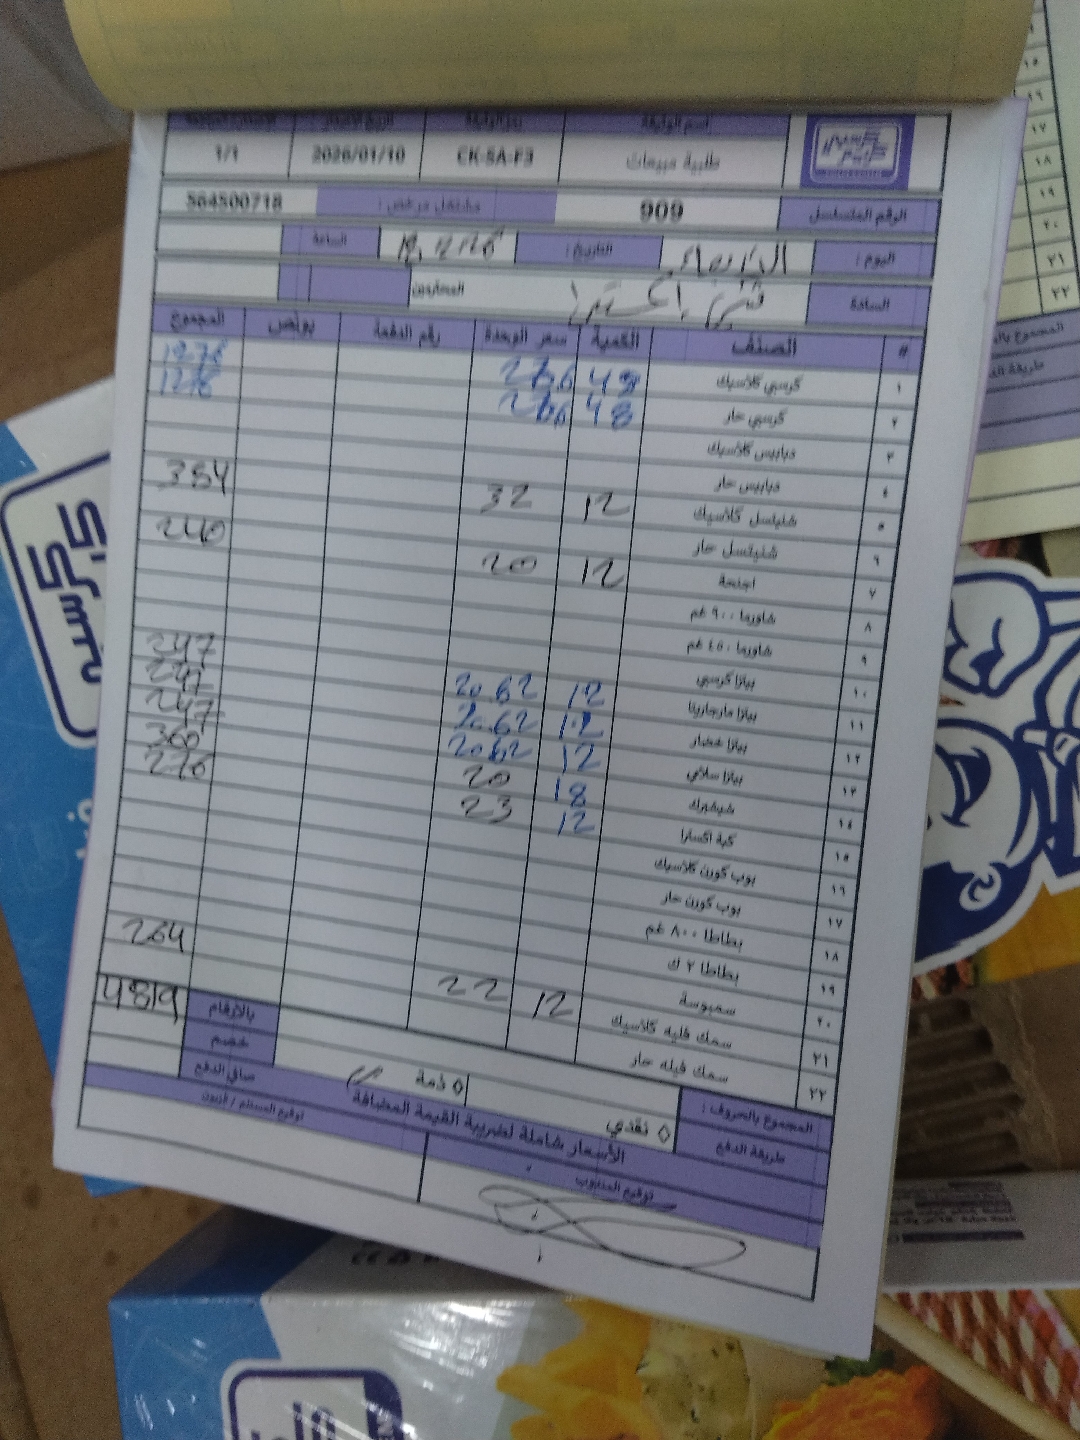 اسم الوثيقة رمز الوثيقة تاريخ الإصدار
طلبية مبيعات CK-SA-F3 2026/01/10 1/1
الرقم المتسلسل 909 مشتغل مرخص : 564500718
اليوم : الأربعاء التاريخ : الساعة
السادة المحترمين
# الصنف الكمية سعر الوحدة رقم الدفعة بونص المجموع
١ كرسبي كلاسيك 48 26.6 1276
٢ كرسبي حار 48 26.6 1276
٣ دبابيس كلاسيك
٤ دبابيس حار
٥ شنيتسل كلاسيك 12 32 384
٦ شنيتسل حار
٧ اجنحة 12 20 240
٨ شاورما ٩٠٠ غم
٩ شاورما ٤٥٠ غم
١٠ بيتزا كرسبي 12 20.62 247
١١ بيتزا مارجريتا 12 20.62 247
١٢ بيتزا خضار 12 20.62 247
١٣ بيتزا سلامي 18 20 360
١٤ شيشبرك 12 23 276
١٥ كبة اكسترا
١٦ بوب كورن كلاسيك
١٧ بوب كورن حار
١٨ بطاطا ٨٠٠ غم
١٩ بطاطا ٢ ك
٢٠ سمبوسة 12 22 264
٢١ سمك فيليه كلاسيك
٢٢ سمك فيله حار
بالأرقام 4819
المجموع بالحروف : خصم
طريقة الدفع ◊ نقدي ◊ ذمة صافي الدفع
الأسعار شاملة لضريبة القيمة المضافة
توقيع المندوب توقيع المستلم / الزبون
كرسبي